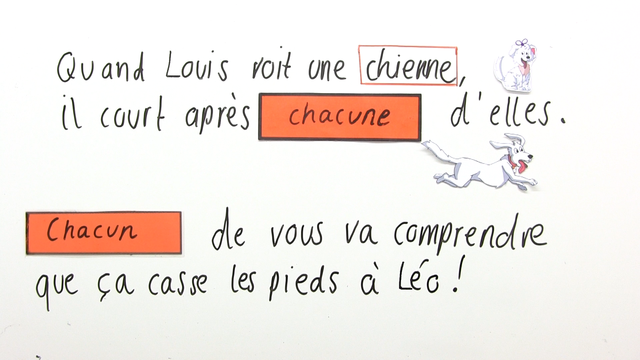 Quand Louis voit une chienne,
il court après chacune d'elles.
Chacun de vous va comprendre
que ça casse les pieds à Léo !